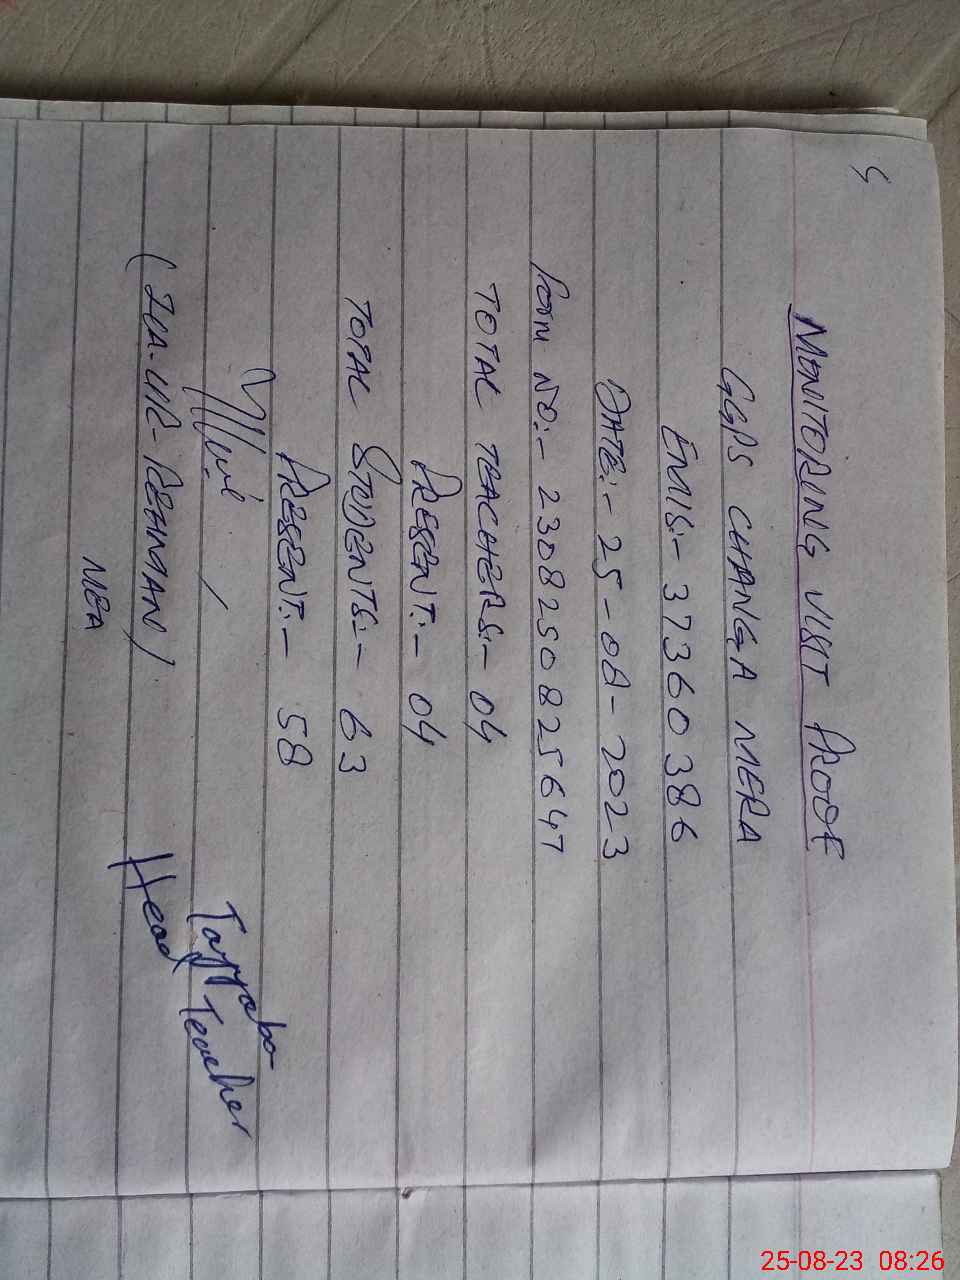 MONITORING VISIT PROOF
GGPS CHANGA MERA
EMIS:- 37360386
DATE:- 25-08-2023
Form NO:- 2308250825647
TOTAL TEACHERS:- 04
PRESENT:- 04
TOTAL STUDENTS:- 63
PRESENT:- 58
(ZIA-UR-REHMAN)
MEA
Tayyaba
Head Teacher
25-08-23 08:26